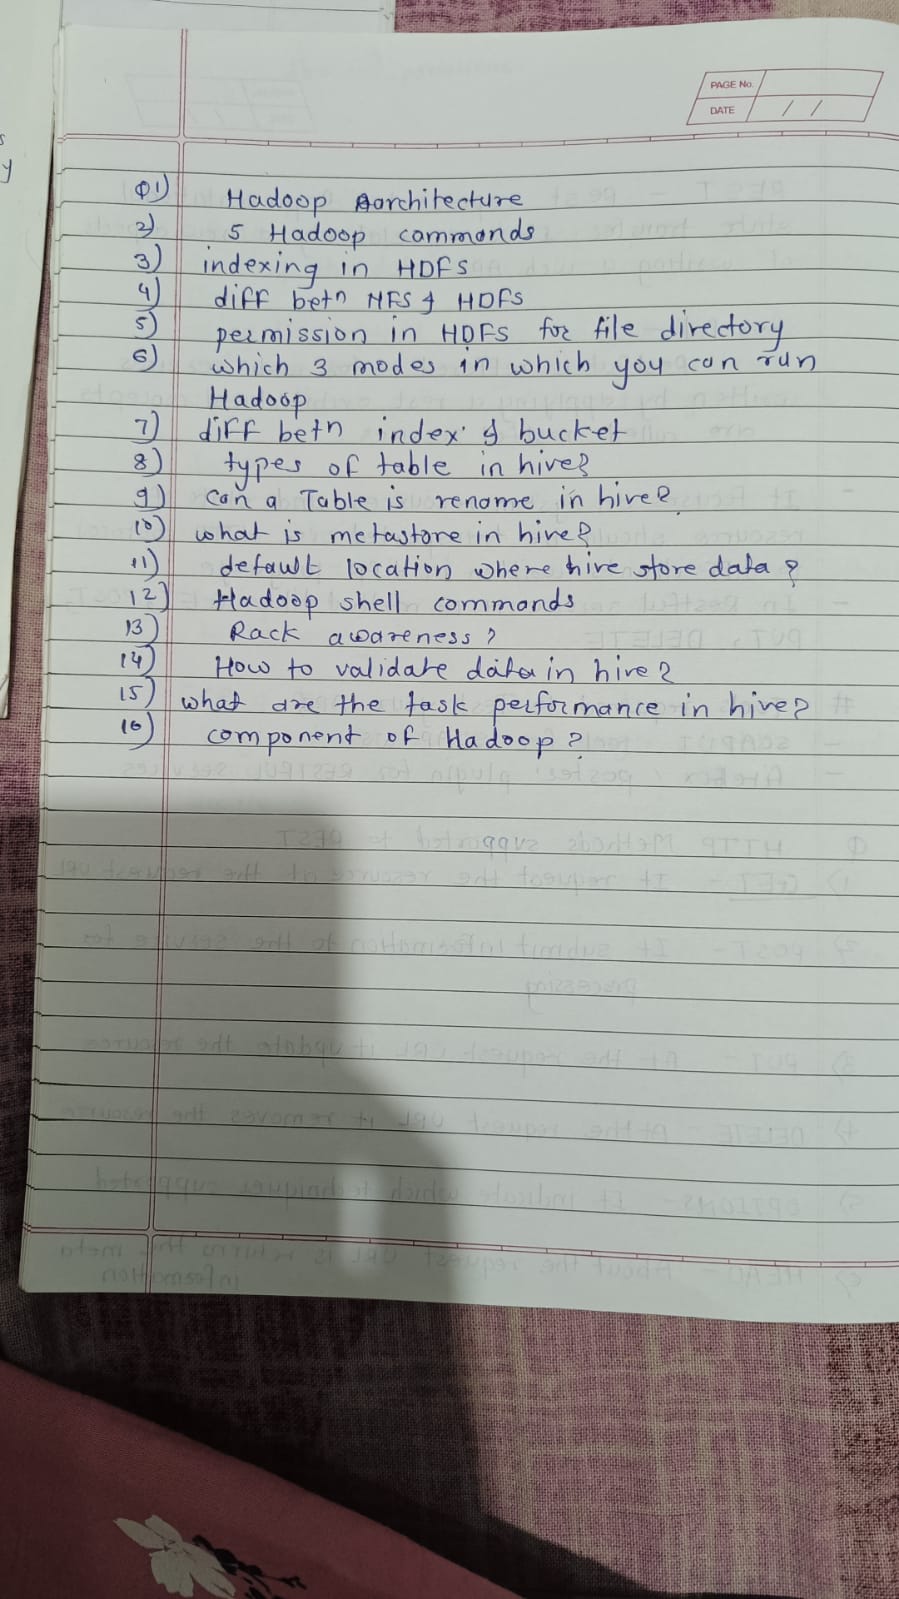 PAGE No.
DATE / /
Q1) Hadoop Aarchitecture
2) 5 Hadoop commands
3) indexing in HDFS
4) diff betn NFS & HDFS
5) permission in HDFS for file directory
6) which 3 modes in which you can run
Hadoop
7) diff betn index & bucket
8) types of table in hive?
9) can a Table is rename in hive?
10) what is metastore in hive?
11) default location where hive store data?
12) Hadoop shell commands
13) Rack awareness?
14) How to validate data in hive?
15) what are the task performance in hive?
16) component of Hadoop?